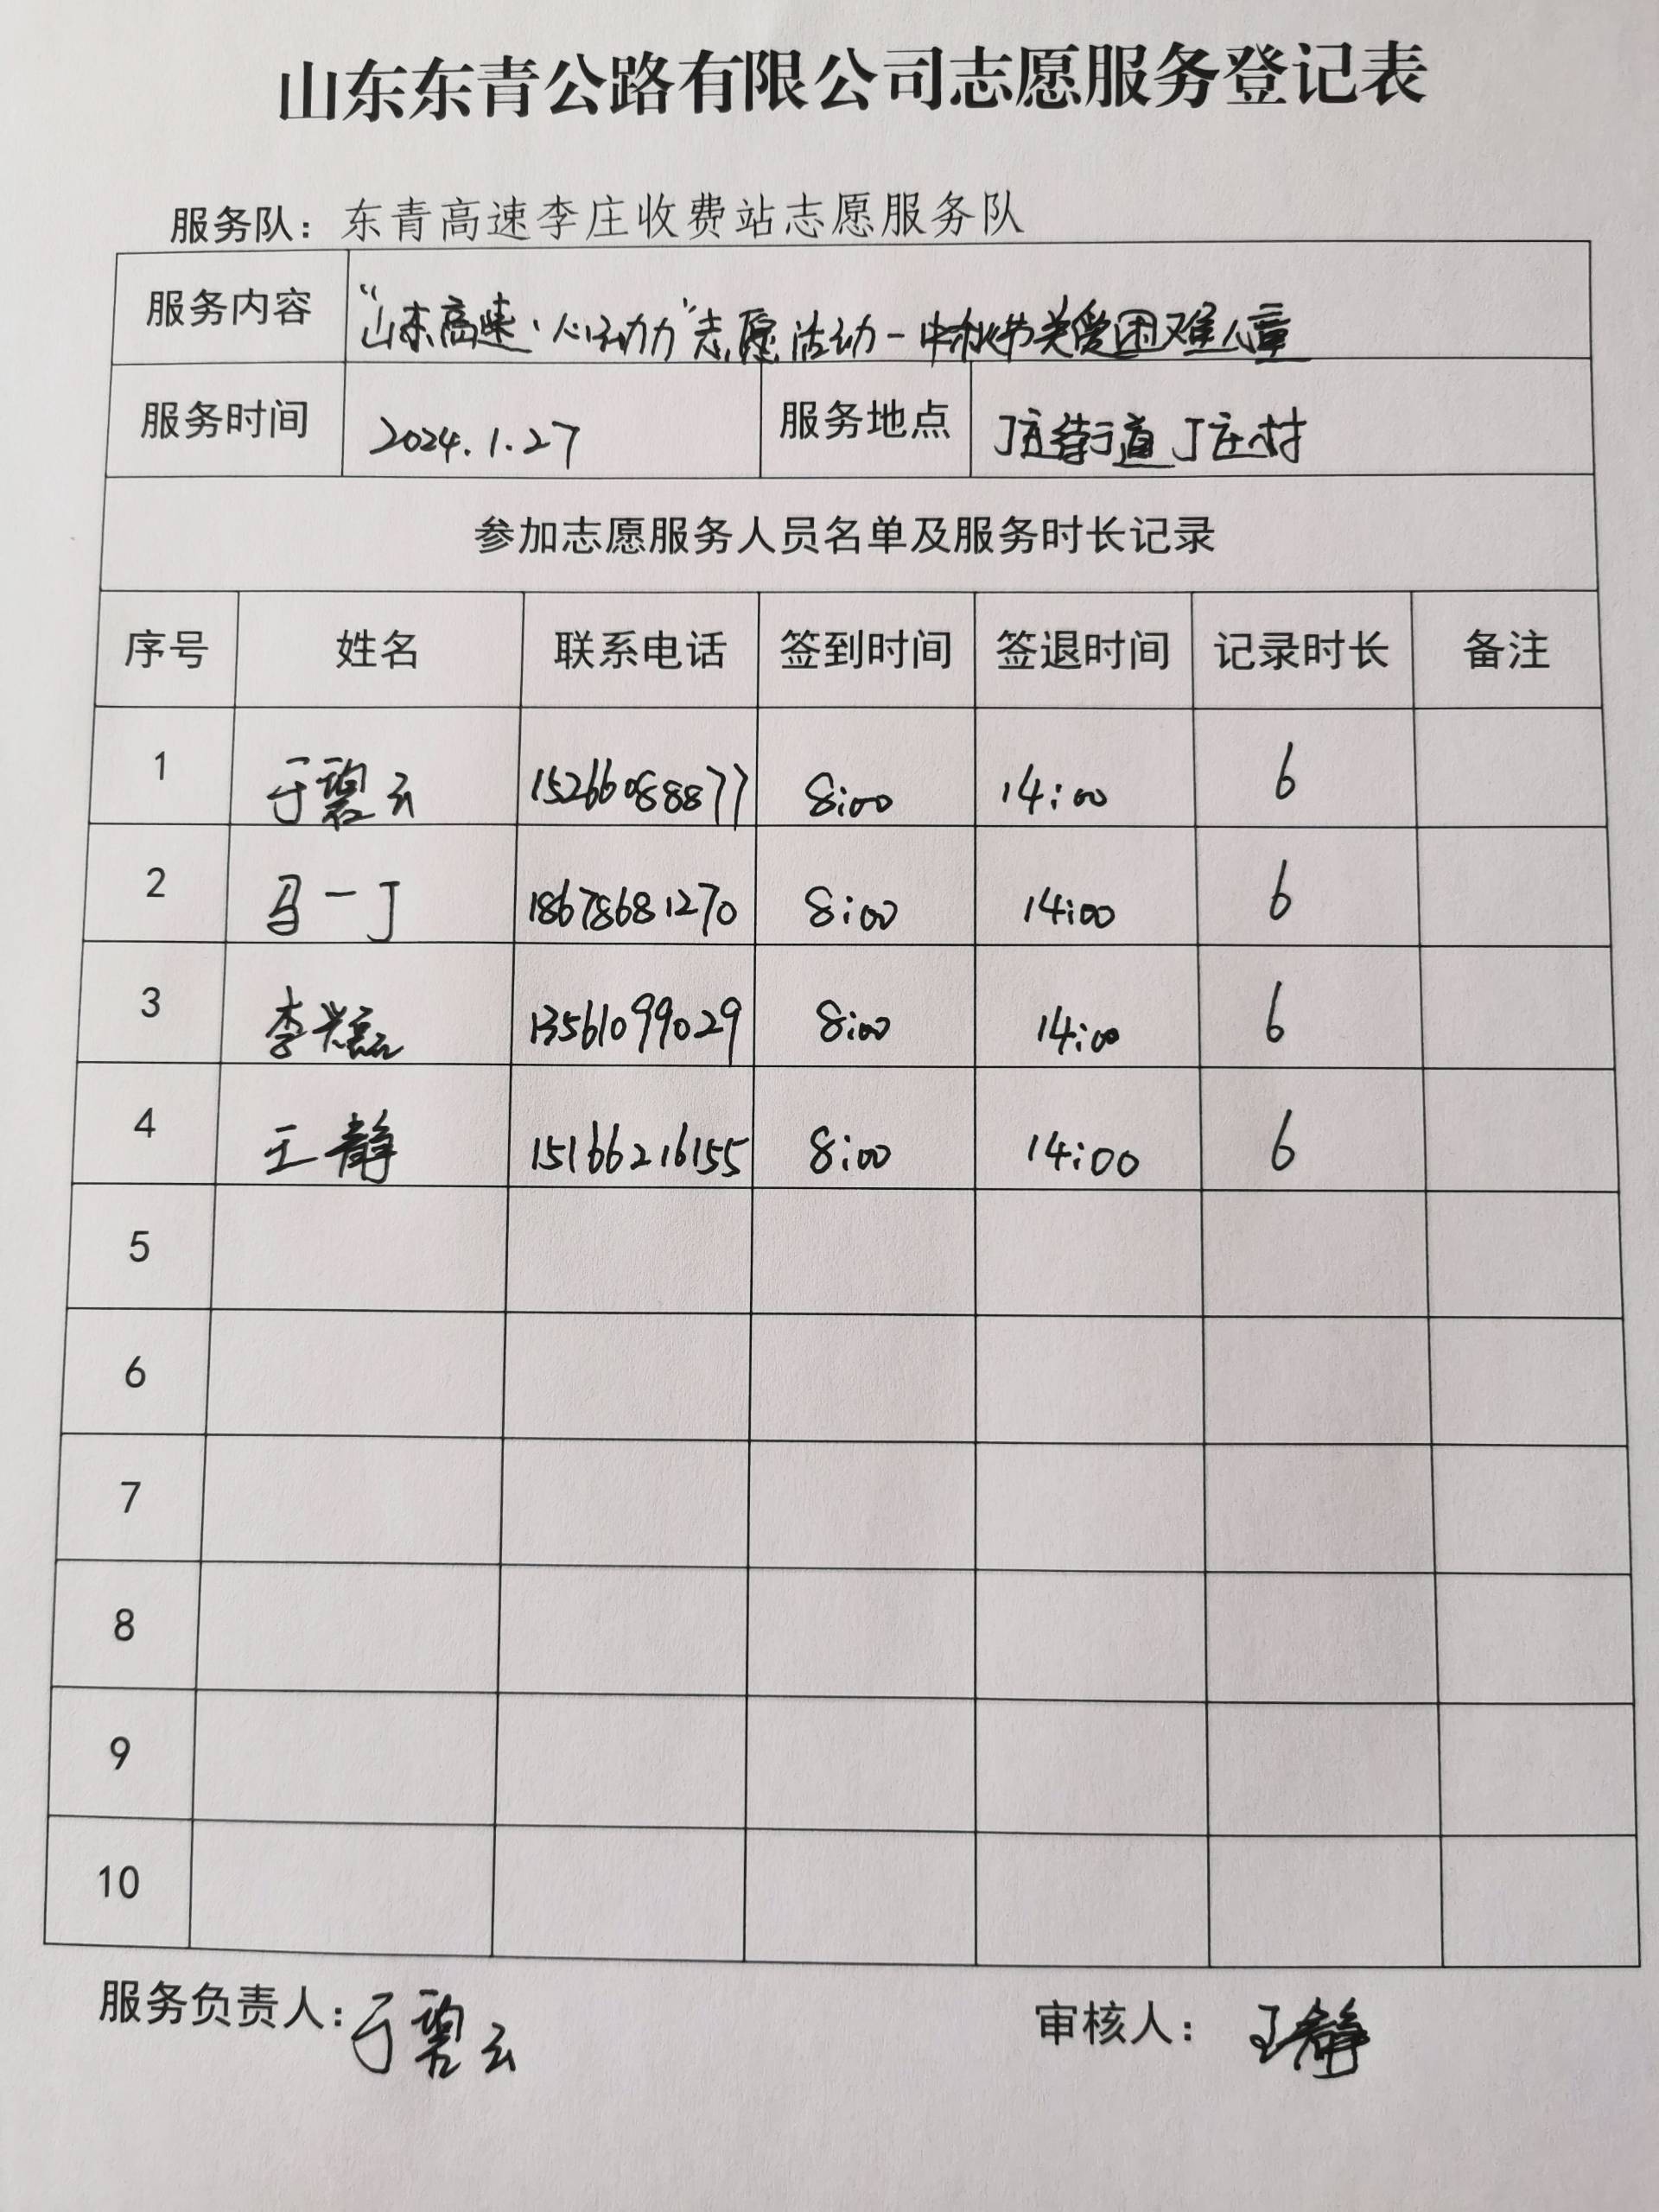 山东东青公路有限公司志愿服务登记表
服务队：东青高速李庄收费站志愿服务队
服务内容 “山东高速·心动力”志愿活动-中秋节关爱困难儿童
服务时间 2024.1.27 服务地点 丁庄街道丁庄村
参加志愿服务人员名单及服务时长记录
序号 姓名 联系电话 签到时间 签退时间 记录时长 备注
1 于碧云 15266088877 8:00 14:00 6
2 马一丁 18678681270 8:00 14:00 6
3 李 13561099029 8:00 14:00 6
4 王静 15166216155 8:00 14:00 6
5
6
7
8
9
10
服务负责人：于碧云 审核人：王静